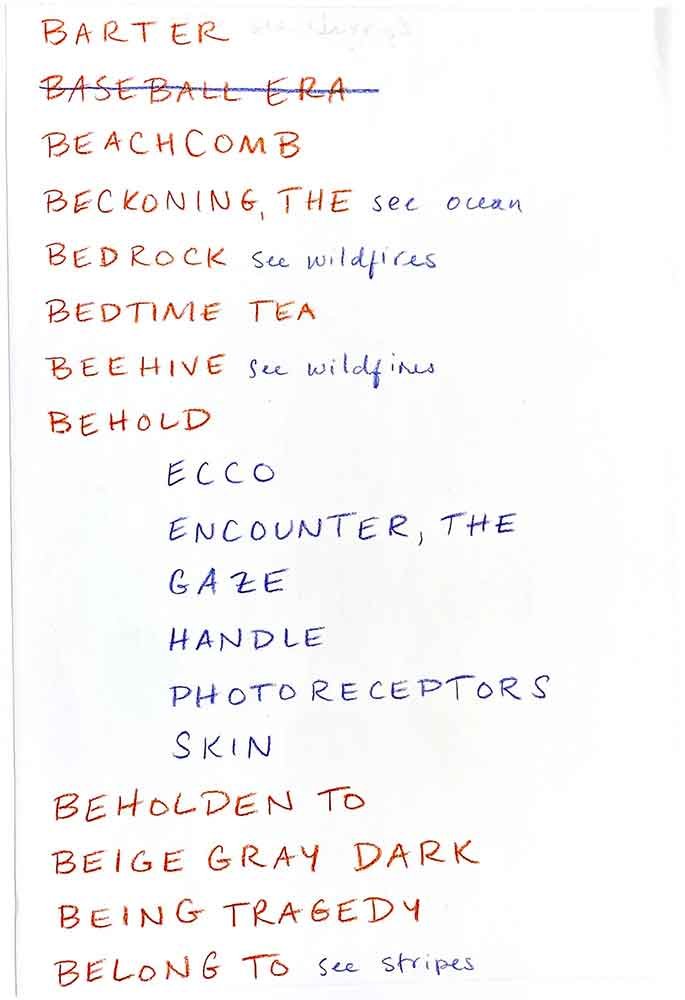 BARTER
BASEBALL ERA
BEACHCOMB
BECKONING, THE see ocean
BEDROCK see wildfires
BEDTIME TEA
BEEHIVE see wildfires
BEHOLD
ECCO
ENCOUNTER, THE
GAZE
HANDLE
PHOTORECEPTORS
SKIN
BEHOLDEN TO
BEIGE GRAY DARK
BEING TRAGEDY
BELONG TO see stripes